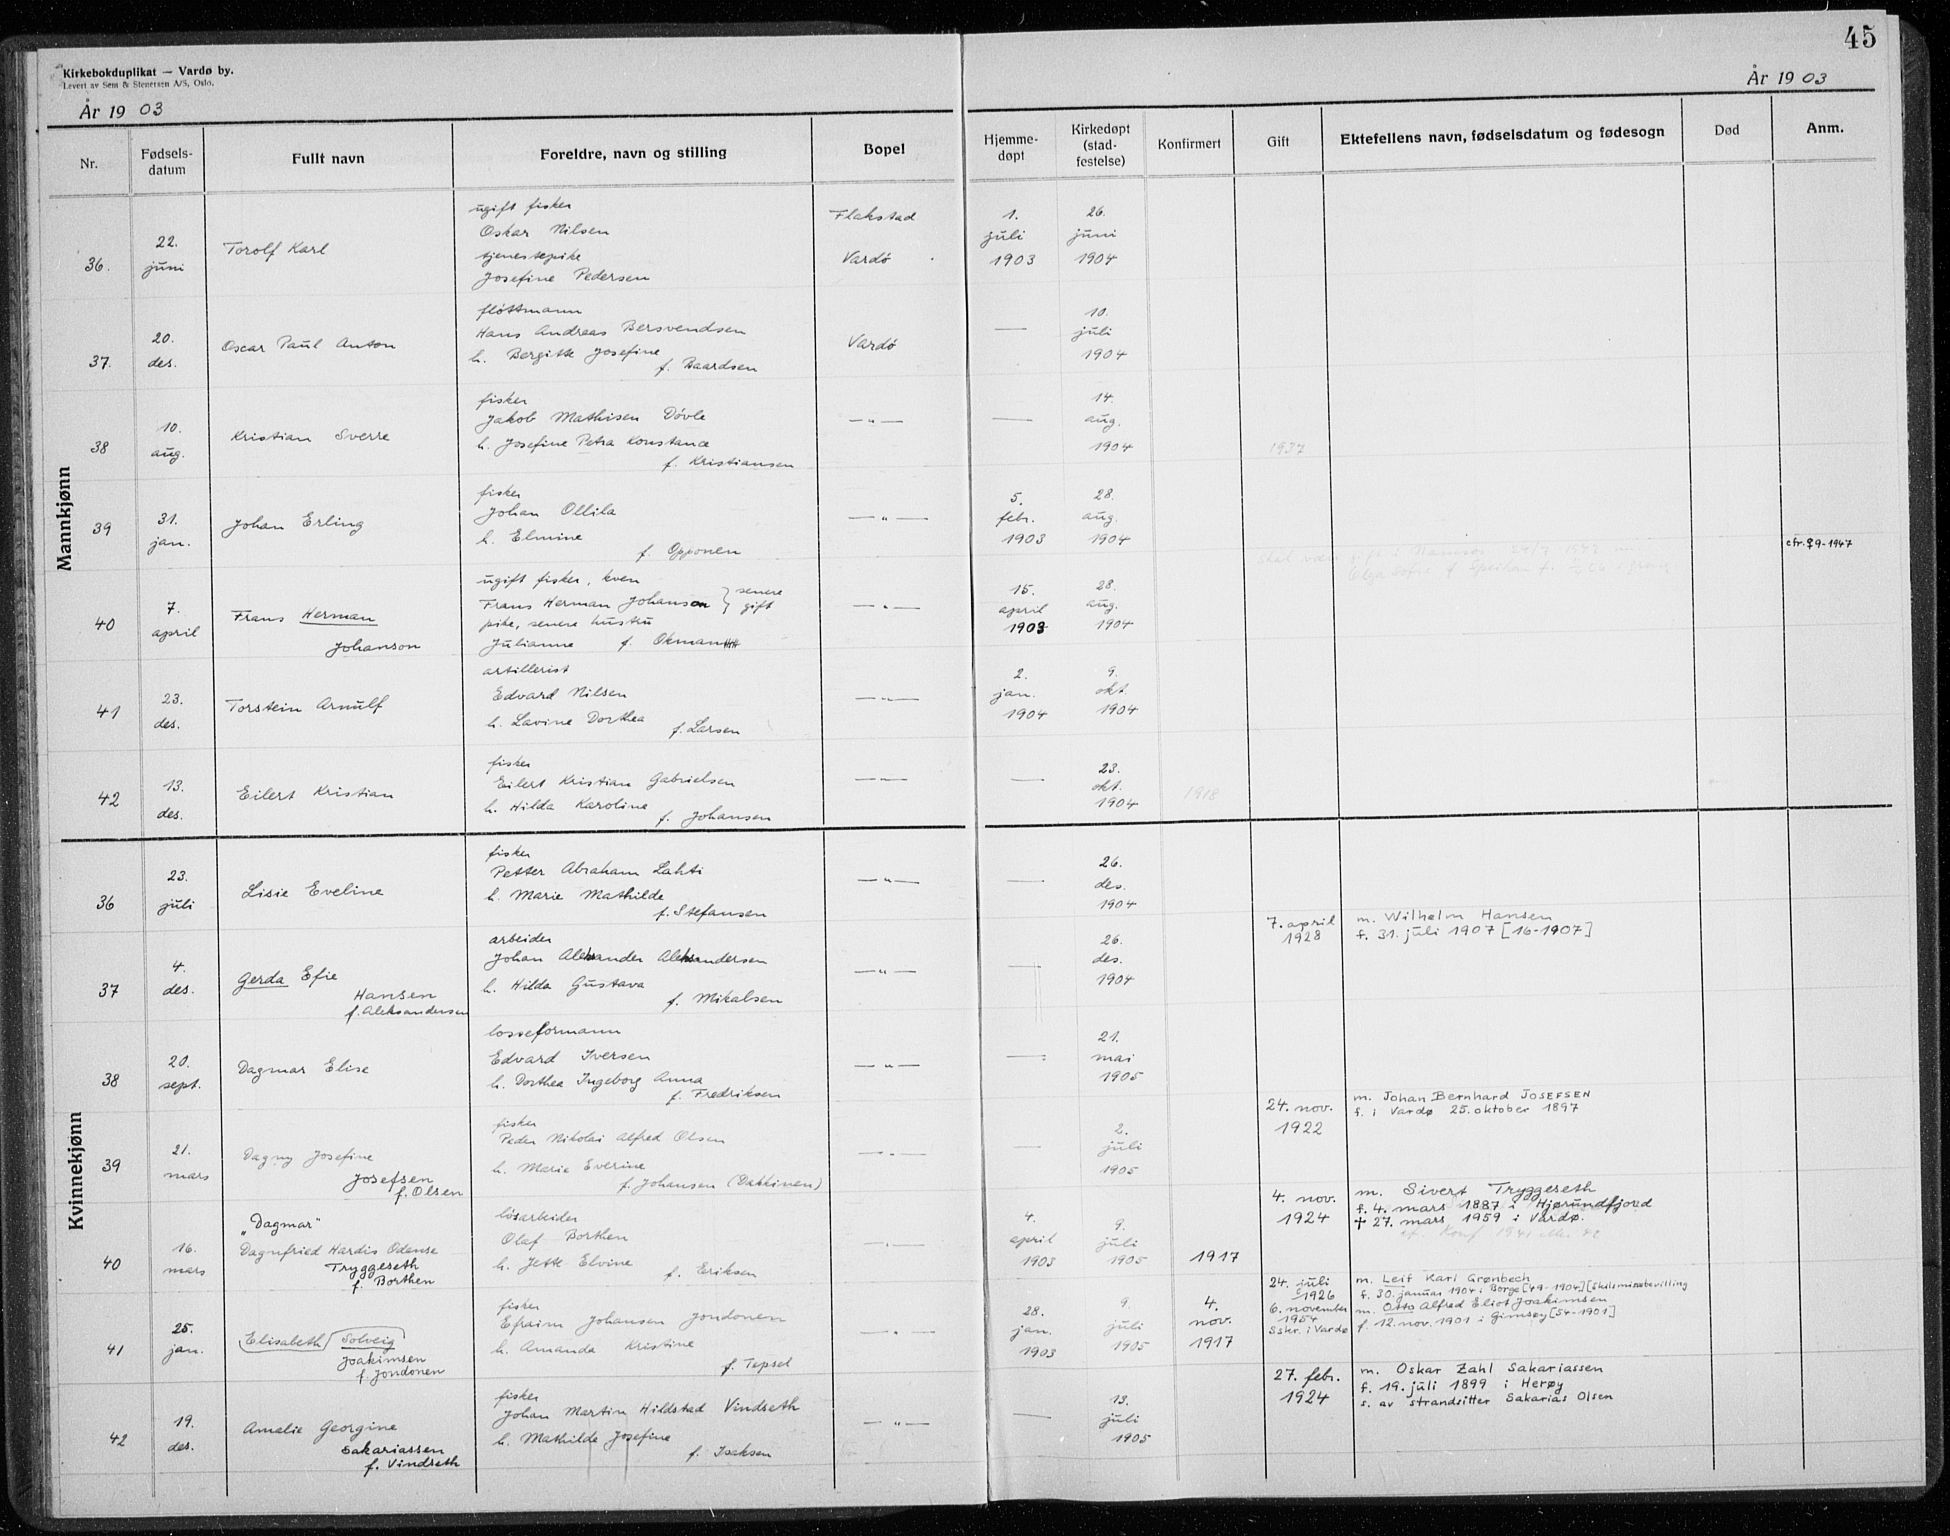 45
Kirkebokduplikat — Vardø by.
Levert av Sem & Stenersen A/S, Oslo.
År 19 03
År 19 03
Nr. Fødselsdatum Fullt navn Foreldre, navn og stilling Bopel Hjemmedøpt Kirkedøpt (stadfestelse) Konfirmert Gift Ektefellens navn, fødselsdatum og fødesogn Død Anm.
Mannkjønn
ugift fisker Flakstad 1. 26.
22. Oskar Nilsen juli juni
36. juni Torolf Karl tjenestepike Vardø 1903 1904
Josefine Pedersen
fløttmann 10.
20. Hans Andreas Bersvendsen — juli
37. des. Oscar Paul Anton h. Bergitte Josefine Vardø 1904
f. Baardsen
fisker 14.
10. Jakob Mathisen Døvle — " — — aug.
38 aug. Kristian Sverre h. Josefine Petra Konstance 1904 1937
f. Kristiansen
fisker 5. 28.
31. Johan Ollila febr. aug.
39 jan. Johan Erling h. Elmine — " — 1903 1904
f. Opponen cfr. 89-1947
ugift fisker, kven 15. 28.
7. Frans Herman Johanson } senere gift — " — april aug.
40 april Frans Herman pike, senere hustru 1903 1904
Johanson Julianne f. Okman
artillerist 2. 9.
23. Edvard Nilsen jan. okt.
41 des. Torstein Arnulf h. Lavine Dorthea — " — 1904 1904
f. Larsen
fisker 23.
13. Eilert Kristian Gabrielsen — " — — okt.
42 des. Eilert Kristian h. Hilda Karoline 1904 1918
f. Johansen
Kvinnekjønn
fisker 26.
23. Petter Abraham Lahti — " — — des.
36 juli Lisie Eveline h. Marie Mathilde 1904
f. Stefansen
arbeider 26. 7. april m. Wilhelm Hansen
4. Johan Aleksander Aleksandersen des. 1928 f. 31. juli 1907 [16-1907]
37 des. Gerda Efie h. Hilda Gustava — " — — 1904
Hansen f. Mikalsen
f. Aleksandersen
losseformann 21.
20. Edvard Iversen — " — — mai
38 sept. Dagmar Elise h. Dorthea Ingeborg Anna 1905
f. Fredriksen
fisker 2. 24. nov. m. Johan Bernhard JOSEFSEN
21. Peder Nikolai Alfred Olsen juli 1922 f. i Vardø 25. oktober 1897
39 mars Dagny Josefine h. Marie Everine — " — — 1905
Josefsen f. Johansen (Dakkinen)
f. Olsen
"Dagmar" løsarbeider 4. 9. 4. nov. m. Sivert Tryggeseth
16. Dagnfried Hardis Odense Olaf Borthen april juli 1924 f. 4. mars 1887 i Hjørundfjord
40 mars Tryggeseth h. Jette Elvine — " — 1903 1905 1917 + 27. mars 1959 i Vardø.
f. Borthen f. Eriksen
fisker 28. 9. 4. 24. juli 1926 m. Leif Karl Grønbech
25. Efraim Johansen Jondonen jan. juli nov. f. 30. januar 1904 i Borge [49-1904] [Skilsmissebevilling
41 jan. Elisabeth Solveig h. Amanda Kristine — " — 1903 1905 1917 6. november 1954 m. Otto Alfred Eliot Joakimsen
Joakimsen f. Tepsel Sskr. i Vardø f. 12. nov. 1901 i Gimsøy [54-1901]
f. Jondonen
fisker 13. 27. febr. m. Oskar Zahl Sakariassen
19. Johan Martin Hildstad Vindseth — " — — juli 1924 f. 19. juli 1899 i Herøy
42 des. Amalie Georgine h. Mathilde Josefine 1905 s. av strandsitter Sakarias Olsen
Sakariassen f. Isaksen
f. Vindseth